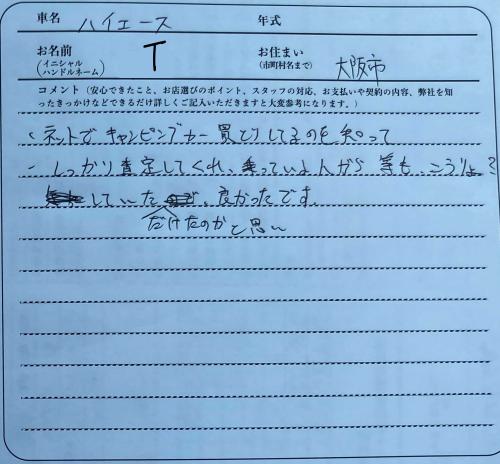 車名 ハイエース 年式
お名前 (イニシャル ハンドルネーム) T お住まい (市町村名まで) 大阪市
コメント（安心できたこと、お店選びのポイント、スタッフの対応、お支払いや契約の内容、弊社を知
ったきっかけなどできるだけ詳しくご記入いただきますと大変参考になります。）
・ネットでキャンピングカー買とりしてるのを知って
・しっかり査定してくれ、乗っていよ人がら 等も、こうりょ
していた、良かったです。
だけたのかと思い